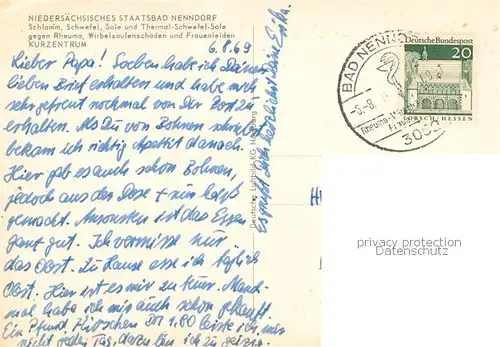 NIEDERSÄCHSISCHES STAATSBAD NENNDORF
Schlamm, Schwefel, Sole und Thermal-Schwefel-Sole
gegen Rheuma, Wirbelsäulenschäden und Frauenleiden
KURZENTRUM
6.8.69
Lieber Papa! Soeben habe ich Deinen
lieben Brief erhalten und habe mich
sehr gefreut nochmal von Dir Post zu
erhalten. Als Du von Bohnen schriebst
bekam ich richtig Appetit danach.
Hier gab es auch schon Bohnen,
jedoch aus der Dose + nur
gemacht. Ansonsten ist das Essen
ganz gut. Ich vermisse nur
das Obst. Zu Hause esse ich täglich
Obst. Hier ist es mir zu teuer. Manch-
mal habe ich mir auch schon gekauft.
Ein Pfund Kirschen DM 1.80 leiste ich mir
nicht jeden Tag, dazu bin ich zu geizig.
Es grüßt Dich herzlichst Deine
Deutsche Luftbild KG Hamburg
BAD NENNDORF
Rheuma
3052
Deutsche Bundespost
20
LORSCH / HESSEN
privacy protection
Datenschutz